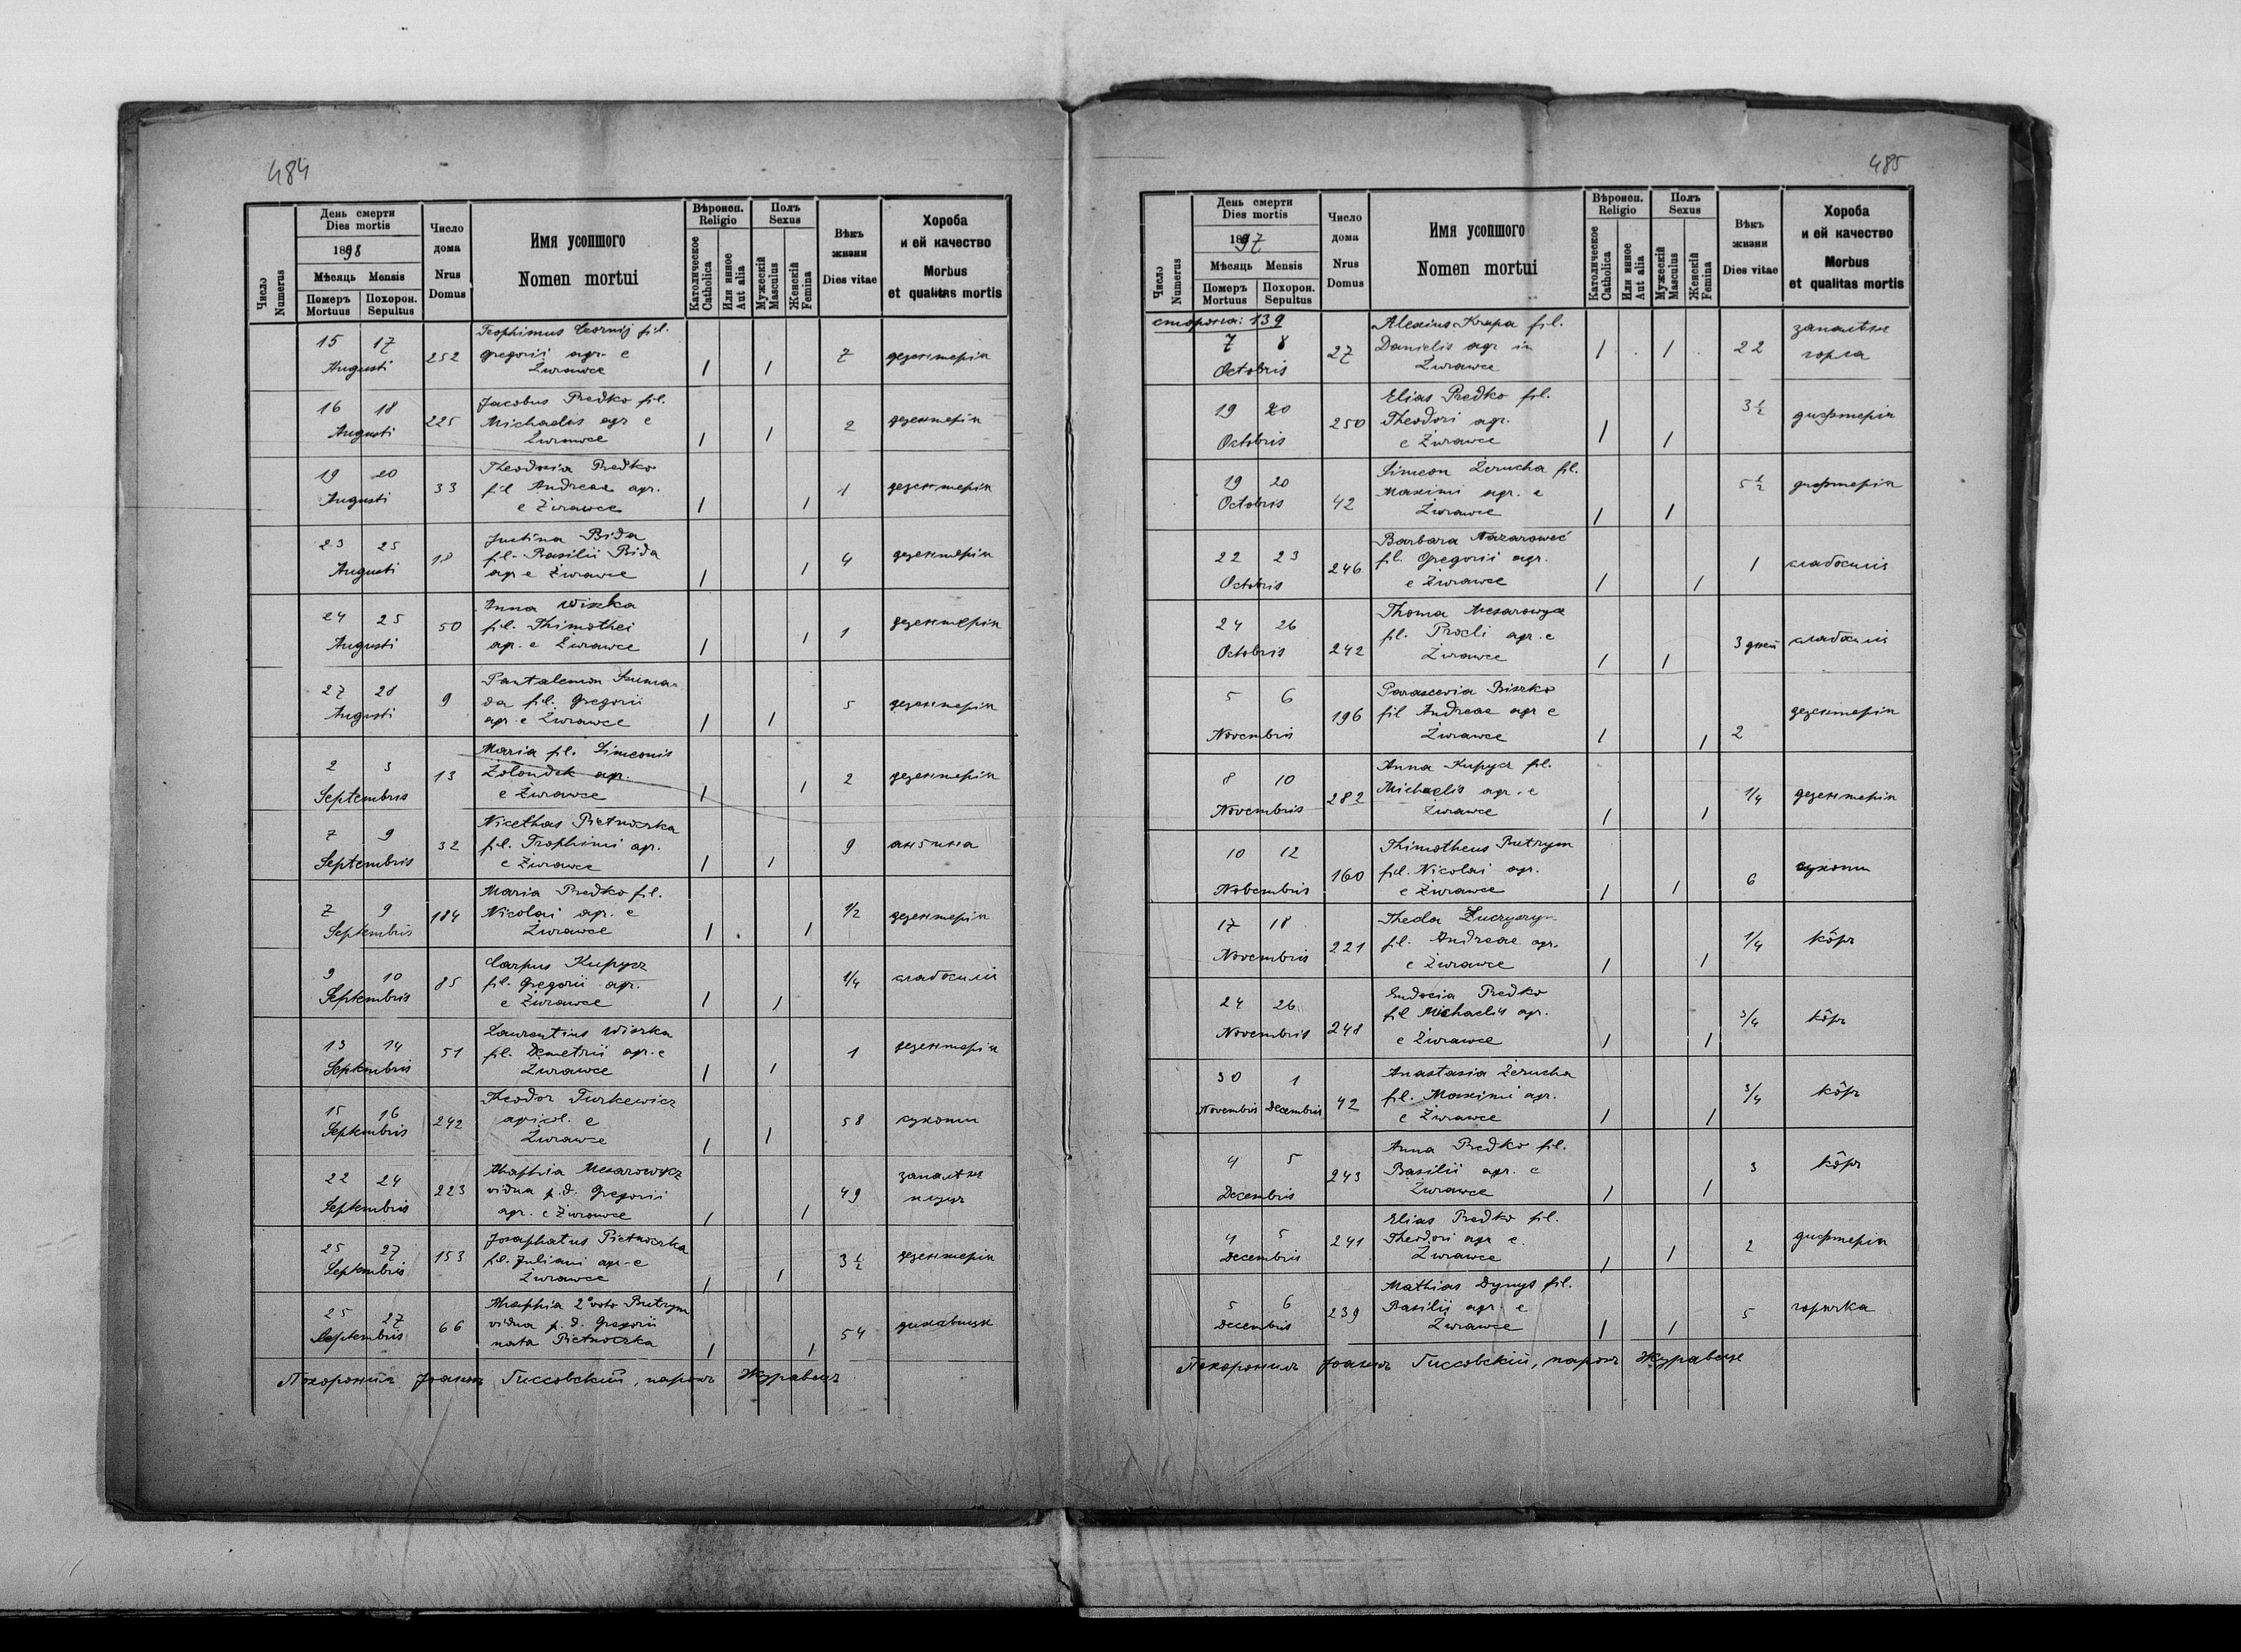 484
Число Numerus
День смерти
Dies mortis
1898
Мѣсяць Mensis
Померъ Mortuus
Похорон. Sepultus
Число дома
Nrus Domus
Имя усопшого
Nomen mortui
Вѣроисп. Religio
Католическое Catholica
Или инное Aut alia
Полъ Sexus
Мужескій Masculus
Женскій Femina
Вѣкъ жизни
Dies vitae
Хороба
и ей качество
Morbus
et qualitas mortis
15 17 Augusti 252
Teophimus Czornij fil.
Gregorii agr. e
Żurawce
7 дезентерія
16 18 Augusti 225
Jacobus Predko fil.
Michaelis agr e
Żurawce
2 дезентерія
19 20 Augusti 33
Theodosia Predko
fil Andreae agr.
e Żurawce
1 дезентерія
23 25 Augusti 18
Justina Bida
fil. Basilii Bida
agr e Żurawce
4 дезентерія
24 25 Augusti 50
Anna Wiszka
fil. Thimothei
agr. e Żurawce
1 дезентерія
27 28 Augusti 9
Pantalemon
da fil. Gregorii
agr. e Żurawce
5 дезентерія
2 3 Septembris 13
Maria fil. Simeonis
Żolondek agr.
e Żurawce
2 дезентерія
7 9 Septembris 32
Nicethas Pietnoczka
fil. Trophimi agr.
e Żurawce
9 ангина
7 9 Septembris 184
Maria Predko fil.
Nicolai agr. e
Żurawce
1/2 дезентерія
9 10 Septembris 85
Carpus Kupycz
fil. Gregorii agr.
e Żurawce
1/4 слабосиліє
13 14 Septembris 51
Laurentius Wiszka
fil. Demetrii agr. e
Żurawce
1 дезентерія
15 16 Septembris 242
Theodor Turkewicz
agricol. e
Żurawce
58 сухоти
22 24 Septembris 223
Ahaphia Mesarowycz
vidua p. d. Gregorii
agr. e Żurawce
49 запалѣнє
25 27 Septembris 153
Josaphatus Pietnoczka
fil. Juliani agr. e
Żurawce
3 1/2 дезентерія
25 27 Septembris 66
Ahaphia 2° voto Butrym
vidua p. d. Gregorii
nata Pietnoczka
54 дихавиця
Похоронилъ Іоаннъ Гиссовскій, парохъ Журавецъ
485
Число Numerus
День смерти
Dies mortis
1897
Мѣсяць Mensis
Померъ Mortuus
Похорон. Sepultus
Число дома
Nrus Domus
Имя усопшого
Nomen mortui
Вѣроисп. Religio
Католическое Catholica
Или инное Aut alia
Полъ Sexus
Мужескій Masculus
Женскій Femina
Вѣкъ жизни
Dies vitae
Хороба
и ей качество
Morbus
et qualitas mortis
сторона: 139
7 8 Octobris 27
Alexius Krupa fil.
Danielis agr in
Żurawce
22 запалѣнє
горла
19 20 Octobris 250
Elias Predko fil.
Theodori agr.
e Żurawce
3 1/2 дифтерія
19 20 Octobris 42
Simeon Żerucha fil.
Maximi agr. e
Żurawce
5 1/2 дифтерія
22 23 Octobris 246
Barbara Nazaroweć
fil. Gregorii agr.
e Żurawce
1 слабосиліє
24 26 Octobris 242
Thoma Mesarowycz
fil. Procli agr. e
Żurawce
3 дней слабосиліє
5 6 Novembris 196
Parascevia Biszko
fil Andreae agr e
Żurawce
2 дезентерія
8 10 Novembris 282
Anna Kupycz fil.
Michaelis agr. e
Żurawce
1/4 дезентерія
10 12 Nobembris 160
Thimotheus Butrym
fil. Nicolai agr.
e Żurawce
6 сухоти
17 18 Novembris 221
Thecla
fil. Andreae agr.
e Żurawce
1/4 кôръ
24 26 Novembris 248
Eudocia Predko
fil Michaelis agr.
e Żurawce
3/4 кôръ
30 1 Novembris Decembris 42
Anastasia Żerucha
fil. Maximi agr.
e Żurawce
3/4 кôръ
4 5 Decembris 243
Anna Predko fil.
Basilii agr. e
Żurawce
3 кôръ
4 5 Decembris 241
Elias Predko fil.
Theodori agr e.
Żurawce
2 дифтерія
5 6 Decembris 239
Mathias Dynys fil.
Basilii agr. e
Żurawce
5 горячка
Похоронилъ Іоаннъ Гиссовскій, парохъ Журавецъ